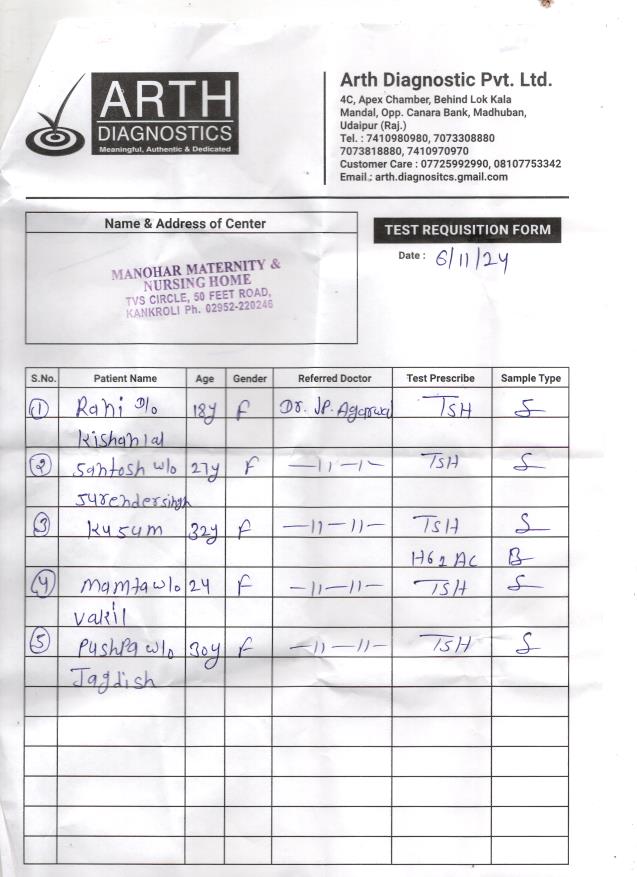 ARTH
DIAGNOSTICS
Meaningful, Authentic & Dedicated
Arth Diagnostic Pvt. Ltd.
4C, Apex Chamber, Behind Lok Kala
Mandal, Opp. Canara Bank, Madhuban,
Udaipur (Raj.)
Tel. : 7410980980, 7073308880
7073818880, 7410970970
Customer Care : 07725992990, 08107753342
Email.: arth.diagnositcs.gmail.com
Name & Address of Center
MANOHAR MATERNITY &
NURSING HOME
TVS CIRCLE, 50 FEET ROAD,
KANKROLI Ph. 02952-220246
TEST REQUISITION FORM
Date : 6/11/24
S.No. Patient Name Age Gender Referred Doctor Test Prescribe Sample Type
1 Rani D/o 18y F Dr. JP. Agarwal TSH S
Kishanlal
2 Santosh w/o 27y F —11—1— TSH S
Surendersingh
3 Kusum 32y F —11—11— TSH S
Hb1AC B
4 Mamta w/o 24 F —11—11— TSH S
Vakil
5 Pushpa w/o 30y F —11—11— TSH S
Jagdish